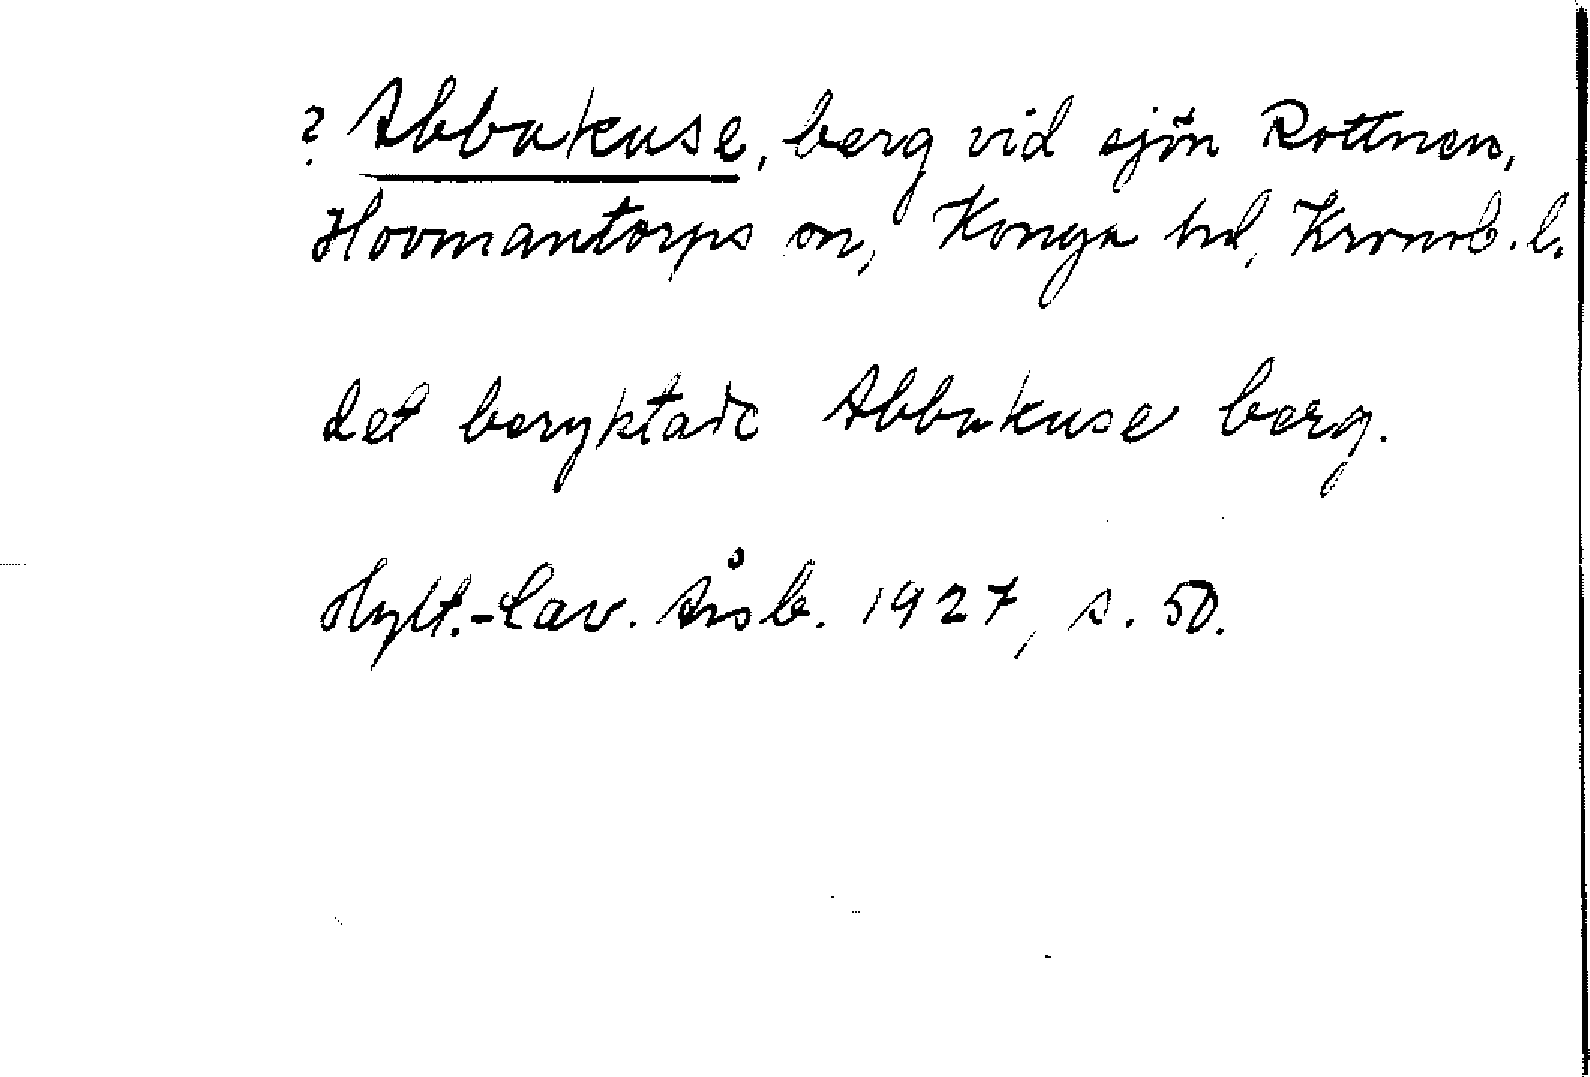 ? Abbakuse, berg vid sjön Rottnen,
Hovmantorps sn, Konga hd, Kronob. l.
det beryktade Abbakuse berg.
Hylt.-Cav. Årsb. 1927, s. 50.